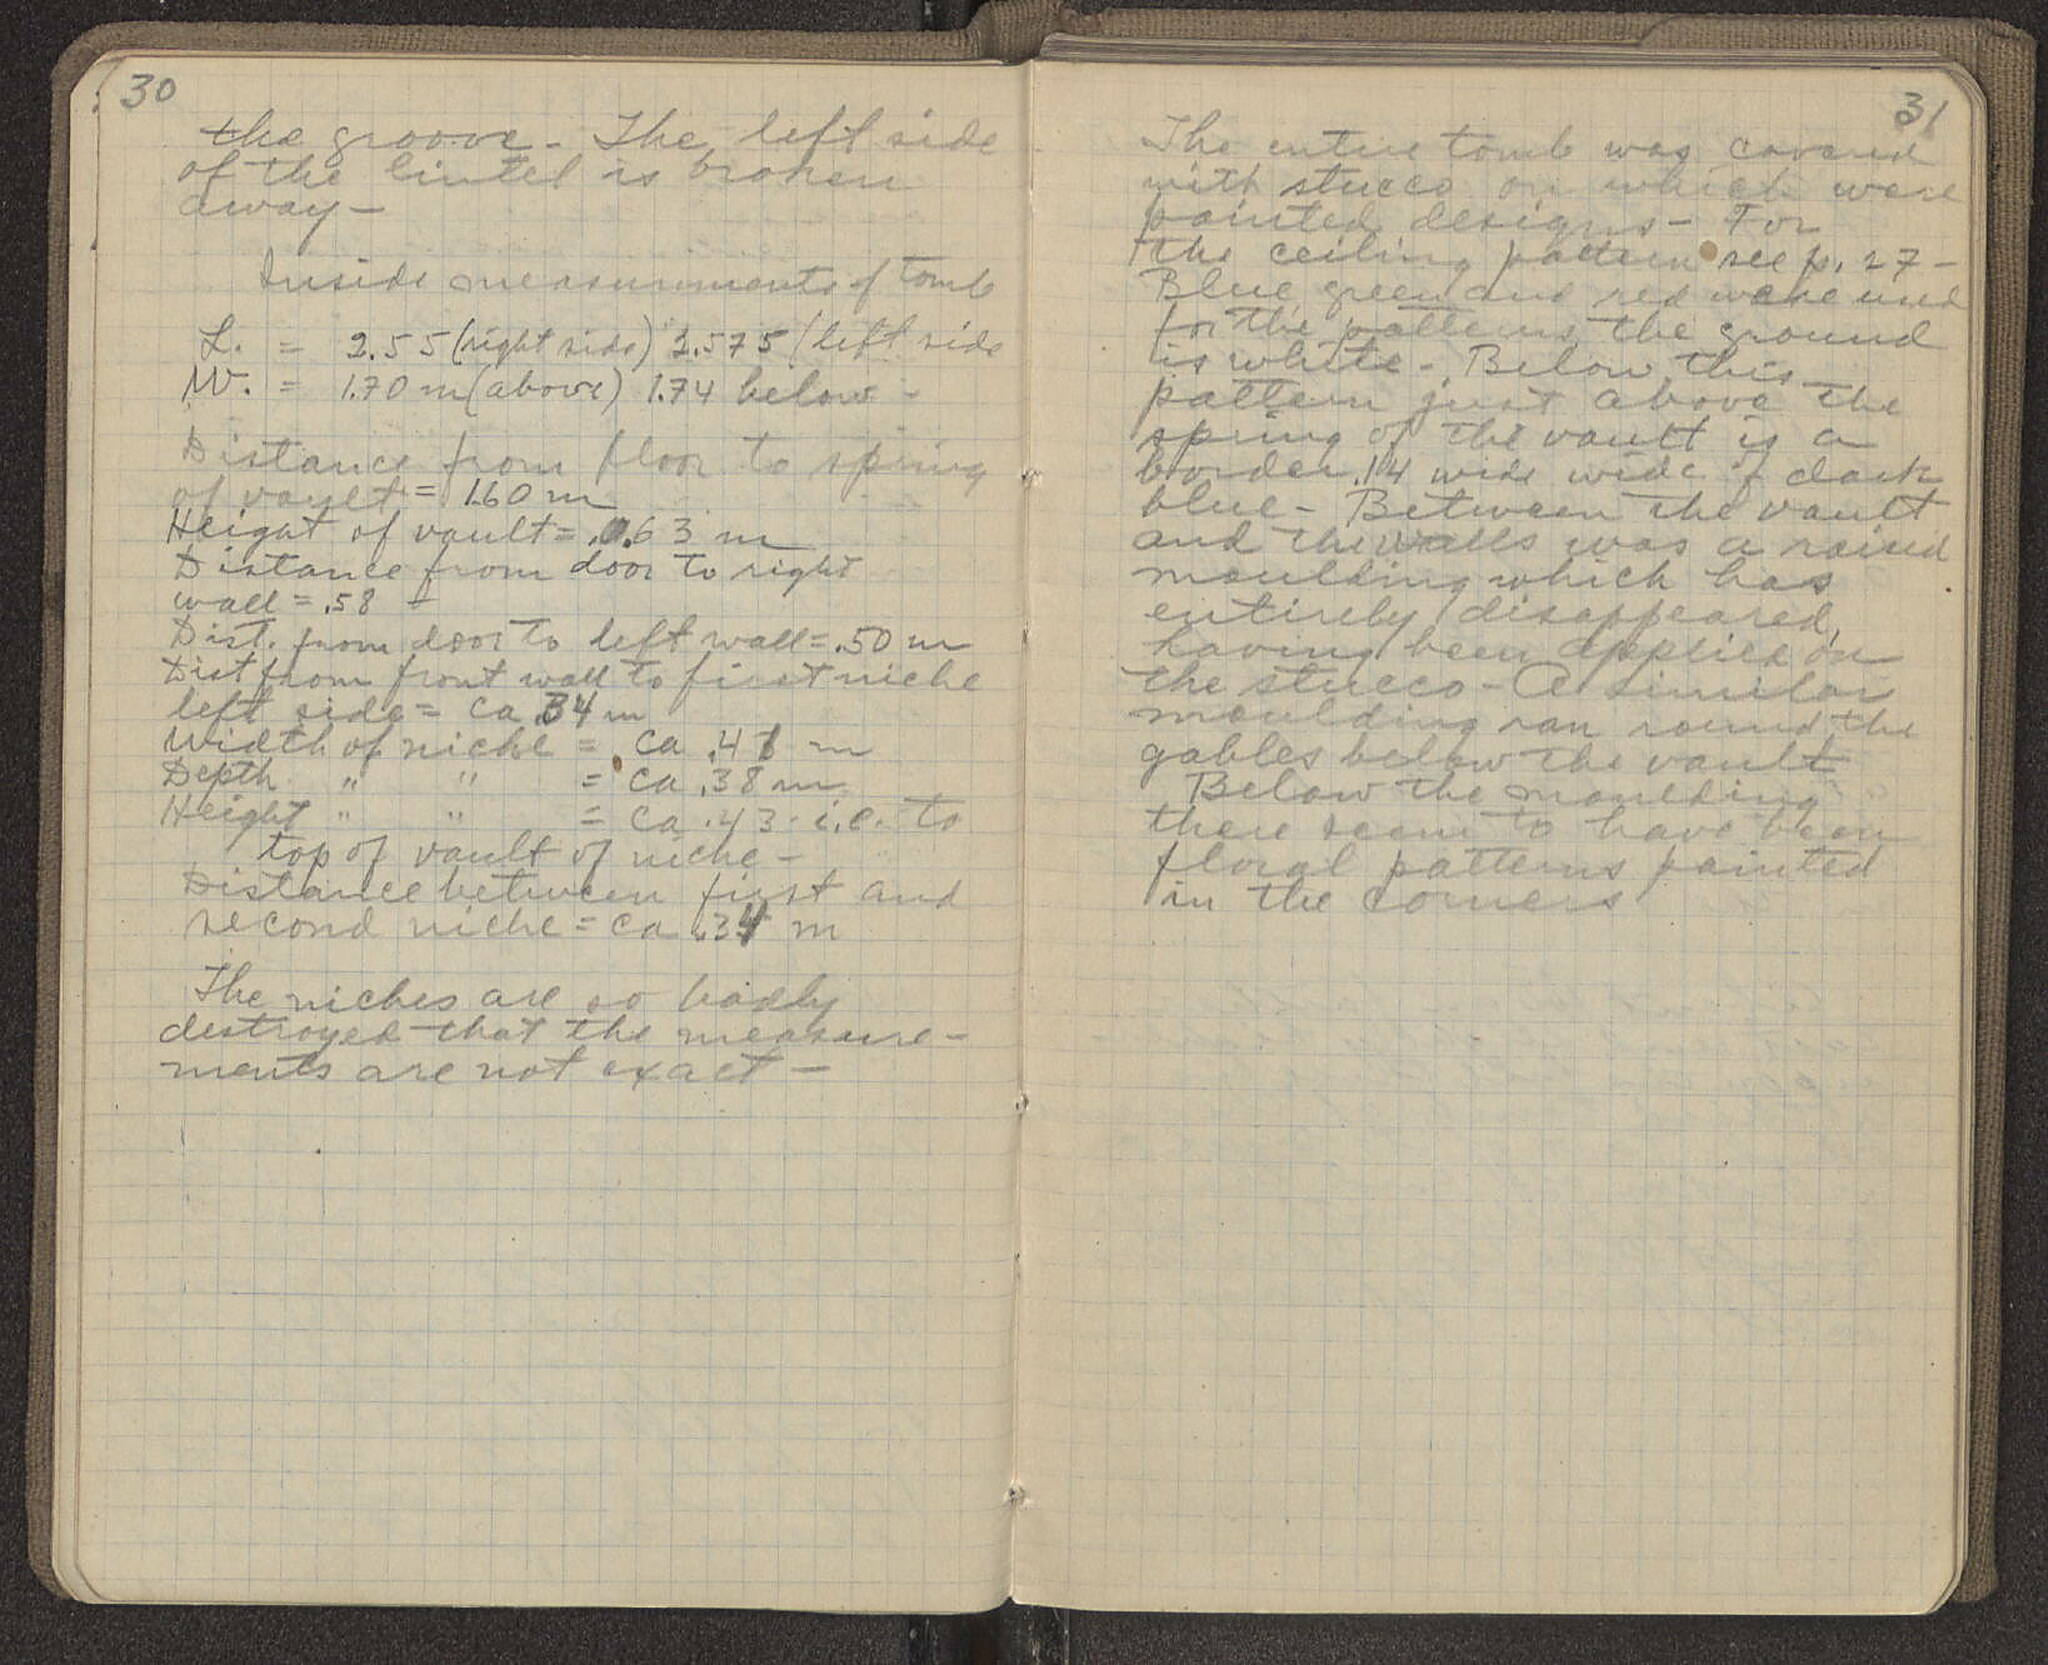 30
the groove - The left side
of the lintel is broken
away -
Inside measurements of tomb
L. = 2.55 (right side) 2.575 (left side
W. = 1.70 m (above) 1.74 below -
Distance from floor to spring
of vault = 1.60 m
Height of vault = 0.63 m
Distance from door to right
wall = .58 -
Dist. from door to left wall = .50 m
Dist from front wall to first niche
left side = ca .34 m
Width of niche = ca .41 m
Depth " " = ca .38 m
Height " " = ca .43 i.e. to
top of vault of niche -
Distance between first and
second niche = ca .34 m
The niches are so badly
destroyed that the measure-
ments are not exact -
31
The entire tomb was covered
with stucco on which were
painted designs - For
the ceiling pattern see p. 27 -
Blue, green and red were used
for the patterns, the ground
is white - Below this
pattern just above the
spring of the vault is a
border .14 wide wide of dark
blue - Between the vault
and the walls was a raised
moulding which has
entirely disappeared,
having been applied on
the stucco - A similar
moulding ran round the
gables below the vault
Below the moulding
there seem to have been
floral patterns painted
in the corners